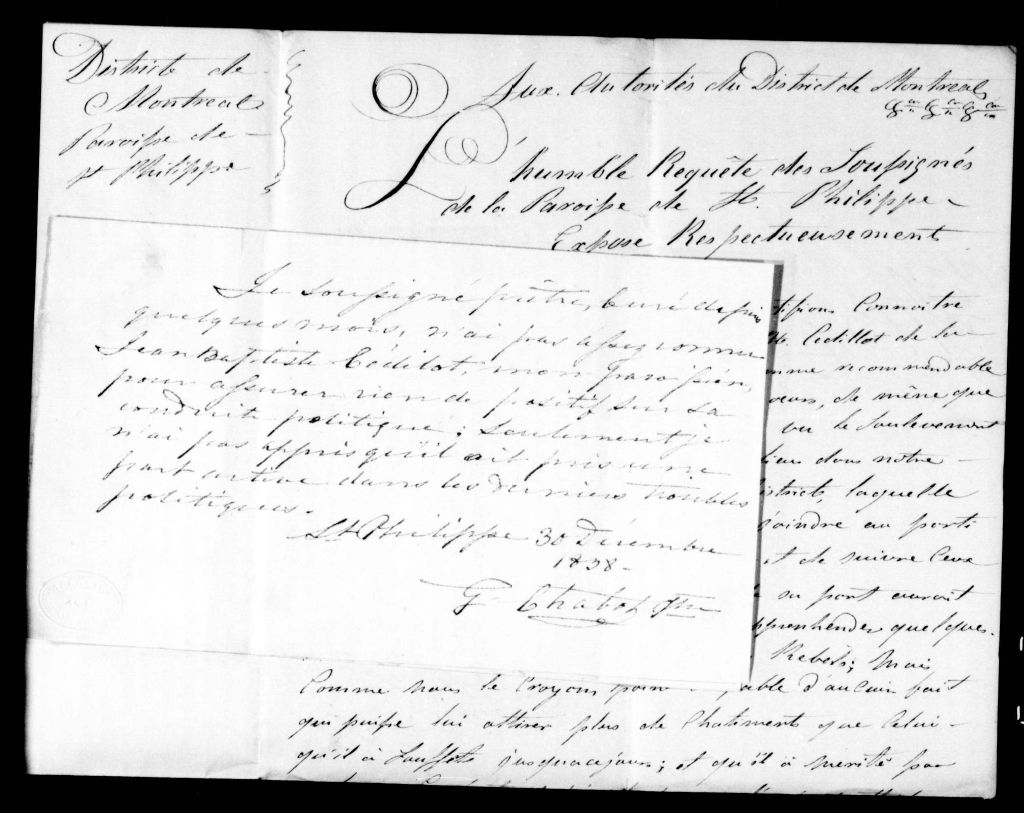 Districte de
Montreal
Paroisse de
St Philippe
Aux Autorités du District de Montreal
&c &c &c
L'humble Requête des Soussignés
de la Paroisse de St. Philippe
Expose Respectueusement
Je soussigné prêtre, Curé depuis
quelques mois, n'ai pas assez connu
Jean Baptiste Cédilot, mon paroissien,
pour assurer rien de positif sur sa
conduite politique; seulement je
n'ai pas appris qu'il ait pris une
part active dans les derniers troubles
politiques.
St Philippe 30 Décembre
1838
Chabot Ptre
Connoitre
Cedillot de la
recommendable
de mêne que
vu le Soulevement
lieu dans notre
laquelle
joindre au parti
et de suivre Ceux
sa part auroit
quelques
Rebels; Mais
Comme Nous le Croyons d'aucuin fait
qui puisse lui attirer plus de Chatiments que Celui
qu'il à Souffets jusquacejour; et qu'il à merité par